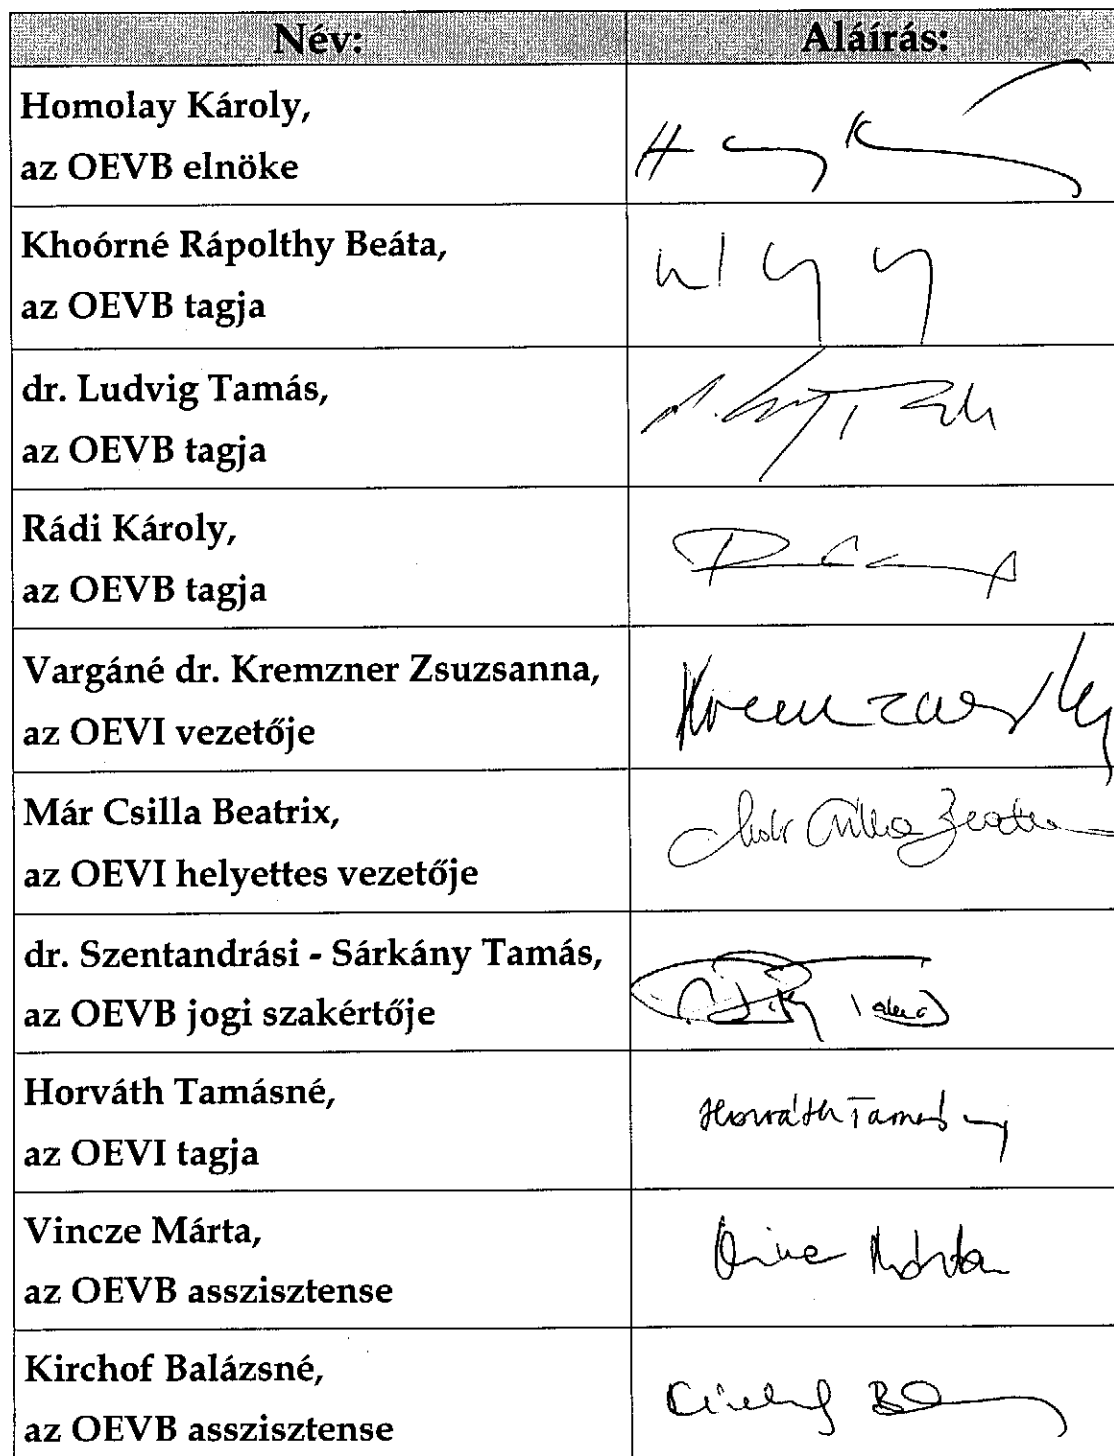 Név: Aláírás:
Homolay Károly,
az OEVB elnöke
Khoórné Rápolthy Beáta,
az OEVB tagja
dr. Ludvig Tamás,
az OEVB tagja
Rádi Károly,
az OEVB tagja
Vargáné dr. Kremzner Zsuzsanna,
az OEVI vezetője
Már Csilla Beatrix,
az OEVI helyettes vezetője
Már Csilla Beatrix
dr. Szentandrási - Sárkány Tamás,
az OEVB jogi szakértője
Horváth Tamásné,
az OEVI tagja
Horváth Tamásné
Vincze Márta,
az OEVB asszisztense
Vincze Márta
Kirchof Balázsné,
az OEVB asszisztense